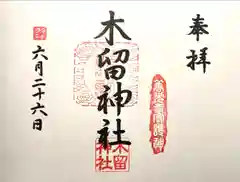 奉拝
木留神社
木留
神社
六月二十六日